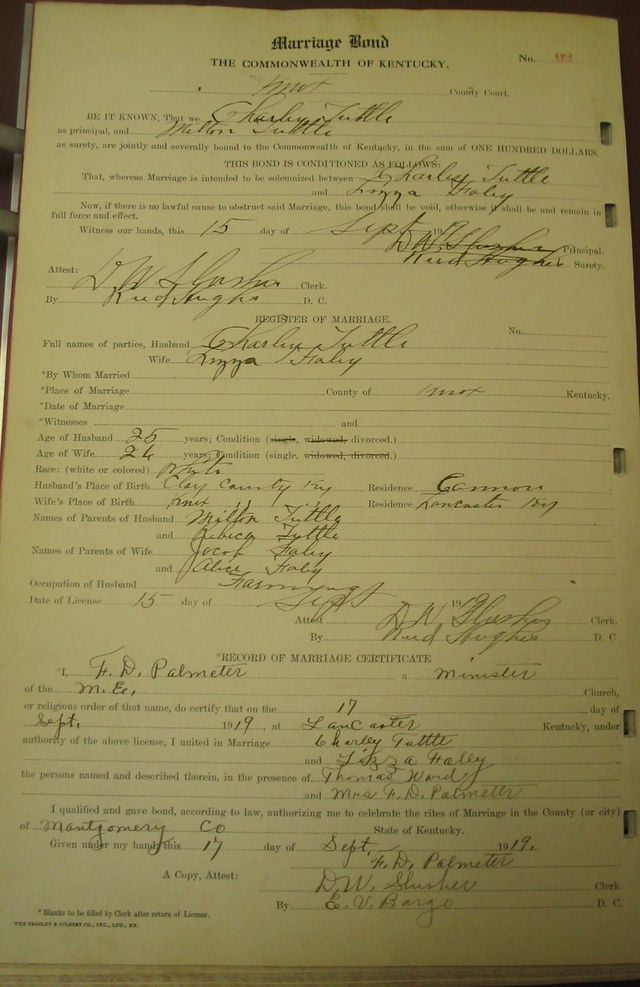 Marriage Bond
THE COMMONWEALTH OF KENTUCKY,
No. 92
Knox County Court.
BE IT KNOWN, That we Charley Tuttle
as principal, and Milton Tuttle
as surety, are jointly and severally bound to the Commonwealth of Kentucky, in the sum of ONE HUNDRED DOLLARS.
THIS BOND IS CONDITIONED AS FOLLOWS:
That, whereas Marriage is intended to be solemnized between Charley Tuttle
and Lizza Foley
Now, if there is no lawful cause to obstruct said Marriage, this bond shall be void, otherwise it shall be and remain in
full force and effect.
Witness our hands, this 15 day of Sept 1919
D. W. Slusher Principal.
Reed Hughes Surety.
Attest: D W Slusher Clerk.
By Reed Hughes D. C.
REGISTER OF MARRIAGE.
No.
Full names of parties, Husband Charley Tuttle
Wife Lizza Foley
*By Whom Married
*Place of Marriage County of Knox Kentucky.
*Date of Marriage
*Witnesses and
Age of Husband 25 years; Condition (single, widowed, divorced.)
Age of Wife 26 years; Condition (single, widowed, divorced.)
Race: (white or colored) White
Husband's Place of Birth Clay County Ky Residence Cannon
Wife's Place of Birth Knox " " Residence Lancaster Ky
Names of Parents of Husband Milton Tuttle
and Rebeca Tuttle
Names of Parents of Wife Jacob Foley
and Alice Foley
Occupation of Husband Farming
Date of License 15 day of Sept 1919
Attest D. W. Slusher Clerk.
By Reed Hughes D. C
*RECORD OF MARRIAGE CERTIFICATE
*I, F. D. Palmeter a Minister
of the M. E. Church,
or religious order of that name, do certify that on the 17 day of
Sept. 1919, at Lancaster Kentucky, under
authority of the above license, I united in Marriage Charley Tuttle
and Lizza Foley
the persons named and described therein, in the presence of Thomas Ward
and Mrs F. D. Palmeter
I qualified and gave bond, according to law, authorizing me to celebrate the rites of Marriage in the County (or city)
of Montgomery Co State of Kentucky.
Given under my hand this 17 day of Sept. 1919.
F. D. Palmeter
A Copy, Attest: D. W. Slusher Clerk
By E. V. Bargo D. C.
*Blanks to be filled by Clerk after return of License.
THE BRADLEY & GILBERT CO., INC., LOU., KY.